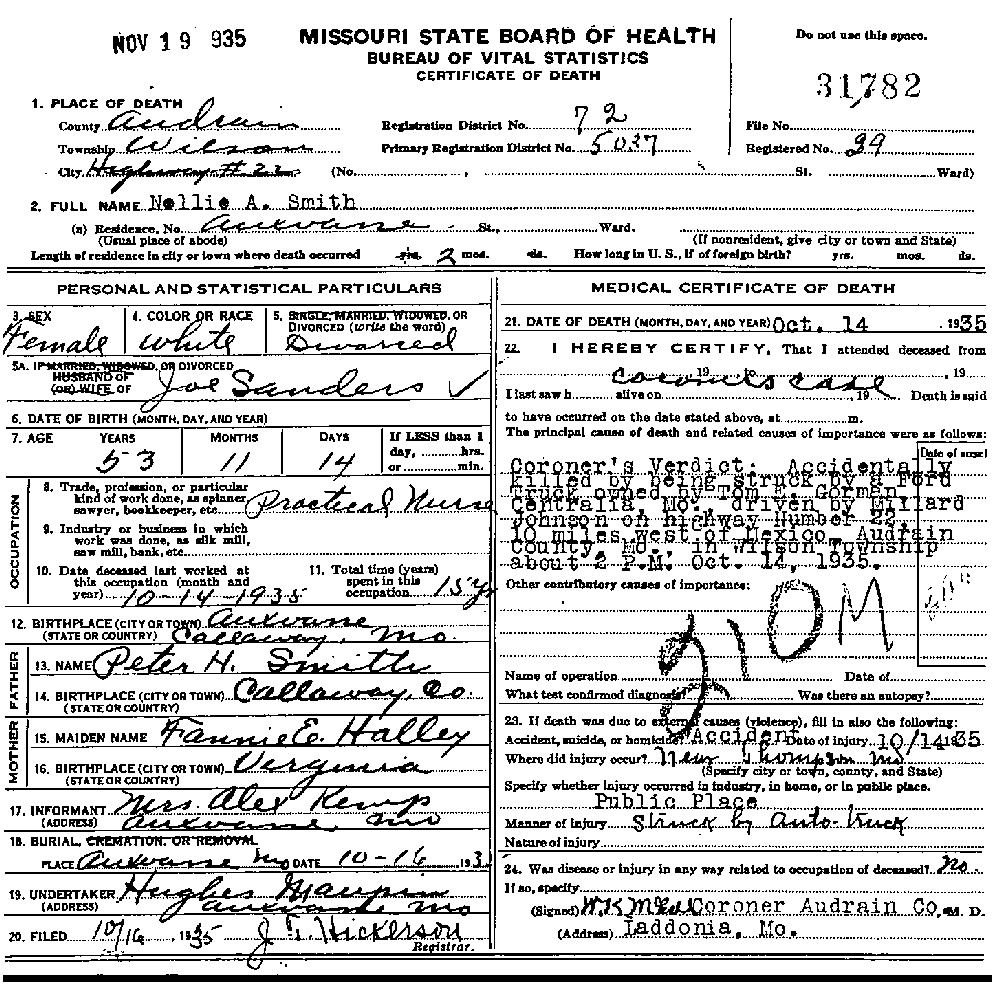 NOV 19 935
MISSOURI STATE BOARD OF HEALTH
BUREAU OF VITAL STATISTICS
CERTIFICATE OF DEATH
Do not use this space.
31782
1. PLACE OF DEATH
County Audrain
Township Wilson
City Highway # 22 (No. , St. Ward)
Registration District No. 72
Primary Registration District No. 5037
File No.
Registered No. 39
2. FULL NAME Nellie A. Smith
(a) Residence, No. Auxvasse St., Ward.
(Usual place of abode) (If nonresident, give city or town and State)
Length of residence in city or town where death occurred yrs. 2 mos. ds. How long in U. S., if of foreign birth? yrs. mos. ds.
PERSONAL AND STATISTICAL PARTICULARS
3. SEX
Female
4. COLOR OR RACE
White
5. SINGLE, MARRIED, WIDOWED, OR
DIVORCED (write the word)
Divorced
5A. IF MARRIED, WIDOWED, OR DIVORCED
HUSBAND OF
(OR) WIFE OF Joe Sanders ✓
6. DATE OF BIRTH (MONTH, DAY, AND YEAR)
7. AGE YEARS MONTHS DAYS If LESS than 1
53 11 14 day, hrs.
or min.
OCCUPATION
8. Trade, profession, or particular
kind of work done, as spinner,
sawyer, bookkeeper, etc. Practical Nurse
9. Industry or business in which
work was done, as silk mill,
saw mill, bank, etc.
10. Date deceased last worked at
this occupation (month and
year) 10-14-1935
11. Total time (years)
spent in this
occupation 15 yr
12. BIRTHPLACE (CITY OR TOWN) Auxvasse
(STATE OR COUNTRY) Callaway, Mo.
FATHER
13. NAME Peter H. Smith
14. BIRTHPLACE (CITY OR TOWN) Callaway, Co.
(STATE OR COUNTRY)
MOTHER
15. MAIDEN NAME Fannie E. Halley
16. BIRTHPLACE (CITY OR TOWN) Virginia
(STATE OR COUNTRY)
17. INFORMANT Mrs. Alex Kemp
(ADDRESS) Auxvasse, Mo
18. BURIAL, CREMATION, OR REMOVAL
PLACE Auxvasse Mo DATE 10-16 193
19. UNDERTAKER Hughes Maupin
(ADDRESS) Auxvasse Mo
20. FILED 10/16 1935 Hickerson
Registrar.
MEDICAL CERTIFICATE OF DEATH
21. DATE OF DEATH (MONTH, DAY, AND YEAR) Oct. 14 1935
22. I HEREBY CERTIFY, That I attended deceased from
, 19 , to , 19
coroner's case
I last saw h alive on , 19 Death is said
to have occurred on the date stated above, at m.
The principal cause of death and related causes of importance were as follows:
Date of onset
Coroner's Verdict: Accidentally
killed by being struck by a Ford
Truck owned by Tom E. Gorman,
Centralia, Mo., driven by Millard
Johnson on highway Number 22,
10 miles west of Mexico, Audrain
County, Mo., in Wilson Township
about 2 P.M. Oct. 14, 1935.
Other contributory causes of importance:
210M
Name of operation Date of
What test confirmed diagnosis? Was there an autopsy?
23. If death was due to external causes (violence), fill in also the following:
Accident, suicide, or homicide? Accident Date of injury 10/14 1935
Where did injury occur? New Thompson Mo
(Specify city or town, county, and State)
Specify whether injury occurred in industry, in home, or in public place.
Public Place
Manner of injury Struck by Auto-truck
Nature of injury
24. Was disease or injury in any way related to occupation of deceased? No
If so, specify
(Signed) Coroner Audrain Co, M. D.
(Address) Laddonia, Mo.